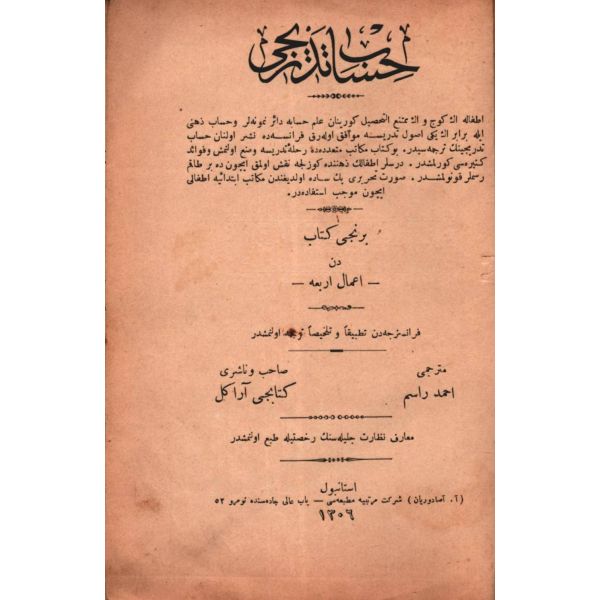 حساب تدریجی
اطفاله اڭ كوج و اڭ ممتنع التحصیل كورینان علم حسابه دائر نمونه‌لر و حساب ذهنی
ایله برابر اڭ یكی اصول تدریسه موافق اوله‌رق فرانسه‌ده نشر اولنان حساب
تدریجینك ترجمه‌سیدر. بو كتاب مكاتب متعدده‌ده رحلهٔ تدریسه وضع اولنمش و فوائد
كثیره‌سی كورلمشدر. درسلر اطفالك ذهننده كوزلجه نقش اولنمق ایچون ده بر طاقم
رسملر قونولمشدر. صورت تحریری پك ساده اولدیغندن مكاتب ابتدائیه اطفالی
ایچون موجب استفاده‌در.
برنجی كتاب
دن
— اعمال اربعه —
فرانسزجه‌دن تطبیقاً و تلخیصاً ترجمه اولنمشدر
مترجمی
احمد راسم
صاحب و ناشری
كتابجی آراكل
معارف نظارت جلیله‌سنك رخصتیله طبع اولنمشدر
استانبول
(آ. آصادوریان) شركت مرتبیه مطبعه‌سی — باب عالی جاده‌سنده نومرو ٥٢
١٣٠٦